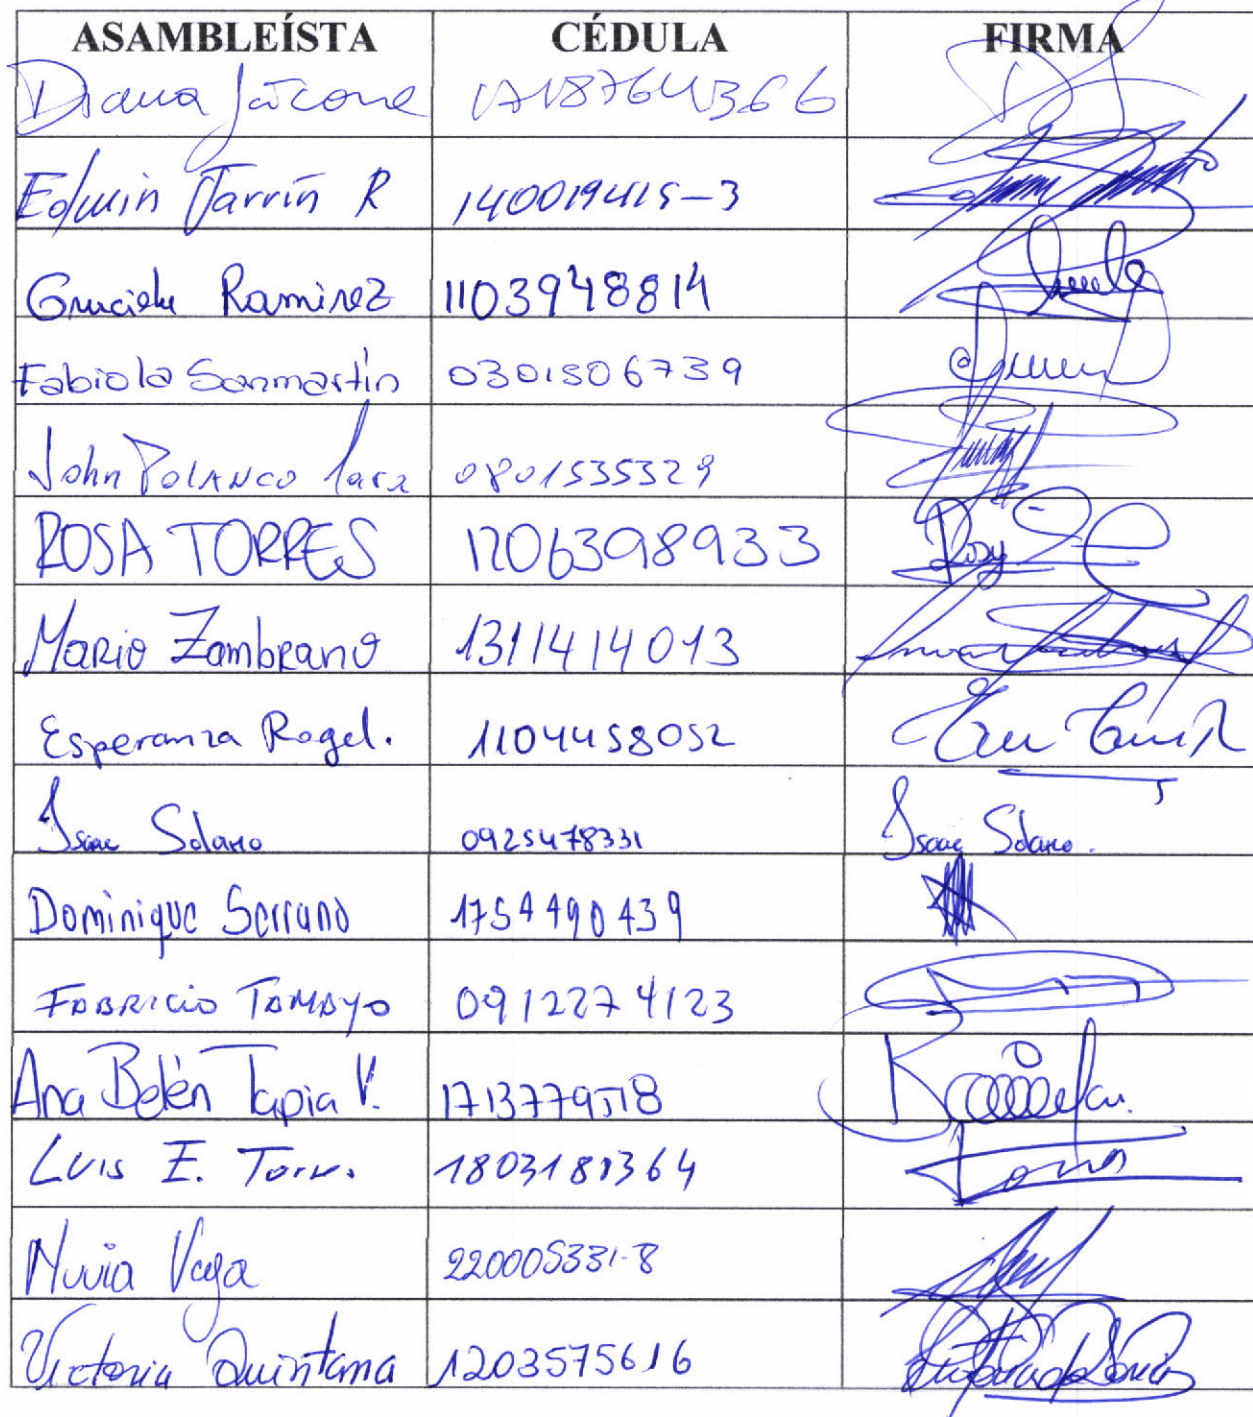 ASAMBLEÍSTA CÉDULA FIRMA
Diana Jácome
Edwin Jarrín R 140019415-3
Graciela Ramirez 1103948814
Fabiola Sanmartín 0301506739
John Polanco Lara 0801535329
ROSA TORRES 1706398933
Mario Zambrano 1311414013
Esperanza Rogel. 1104458052
Isaac Solano 0925478331 Isaac Solano.
Dominique Serrano 1754490439
Fabricio Tamayo 0912274123
Ana Belén Tapia V. 1713779518
Luis E. Torres. 1803181364
Nuvia Vega 220005331-8
Victoria Quintana 1203575616